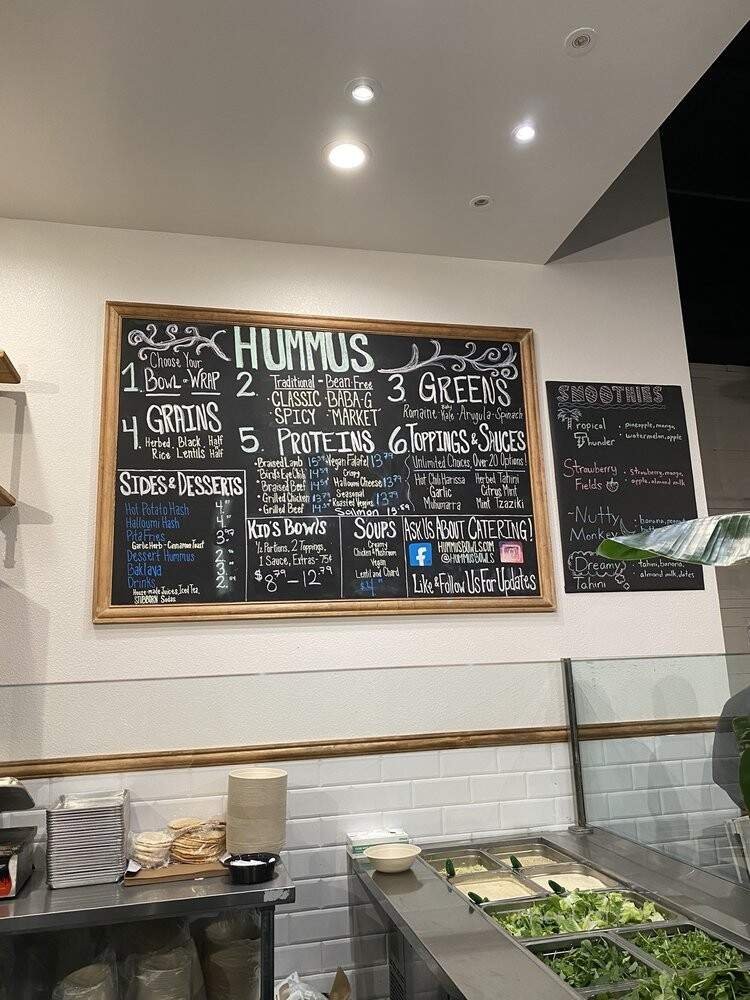 Choose Your
1. BOWL or WRAP
HUMMUS
2. Traditional - Bean-Free
CLASSIC - BABA-G
SPICY - MARKET
3. GREENS
Romaine - Baby Kale - Arugula - Spinach
4. GRAINS
Herbed Rice, Black Lentils, Half Half
5. PROTEINS
Braised Lamb
Bird's Eye Chili
Braised Beef
Grilled Chicken
Grilled Beef
Vegan Falafel 13.79
Crispy
Halloumi Cheese 13.79
Seasonal
Roasted Vegetables 13.79
Salmon
6. TOPPINGS & SAUCES
Unlimited Choices, Over 20 Options!
Hot Chili Harissa
Garlic
Muhumarra
Herbed Tahini
Citrus Mint
Mint Tzaziki
SIDES & DESSERTS
Hot Potato Hash
Halloumi Hash
Pita Fries
Garlic Herb - Cinnamon Toast
Dessert Hummus
Baklava
Drinks
House-made Juices, Iced Tea,
STUBBORN Sodas
KID'S BOWLS
½ Portions, 2 Toppings,
1 Sauce, Extras - 75¢
$8.79 - 12.79
SOUPS
Creamy
Chicken & Mushroom
Vegan
Lentil and Chard
ASK US ABOUT CATERING!
HUMMUSBOWLS.COM
@HUMMUSBOWLS
LIKE & FOLLOW US FOR UPDATES
SMOOTHIES
Tropical Thunder
pineapple, mango,
watermelon, apple
Strawberry Fields
strawberry, mango,
apple, almond milk
Nutty Monkey
banana,
Dreamy Tahini
tahini, banana,
almond milk, dates